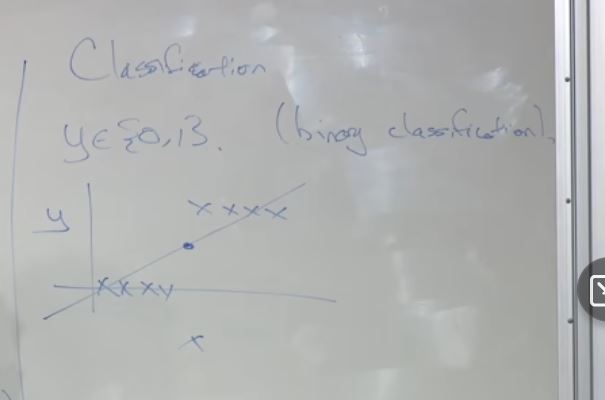 Classification
y ∈ {0,1}. (binary classification).
x x x x
y
x x x x
x